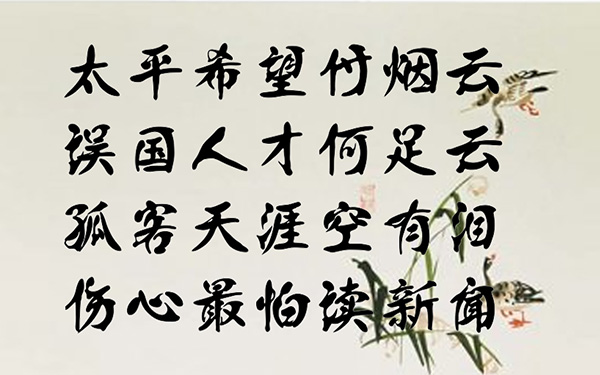 太平希望付烟云
误国人才何足云
孤客天涯空有泪
伤心最怕读新闻